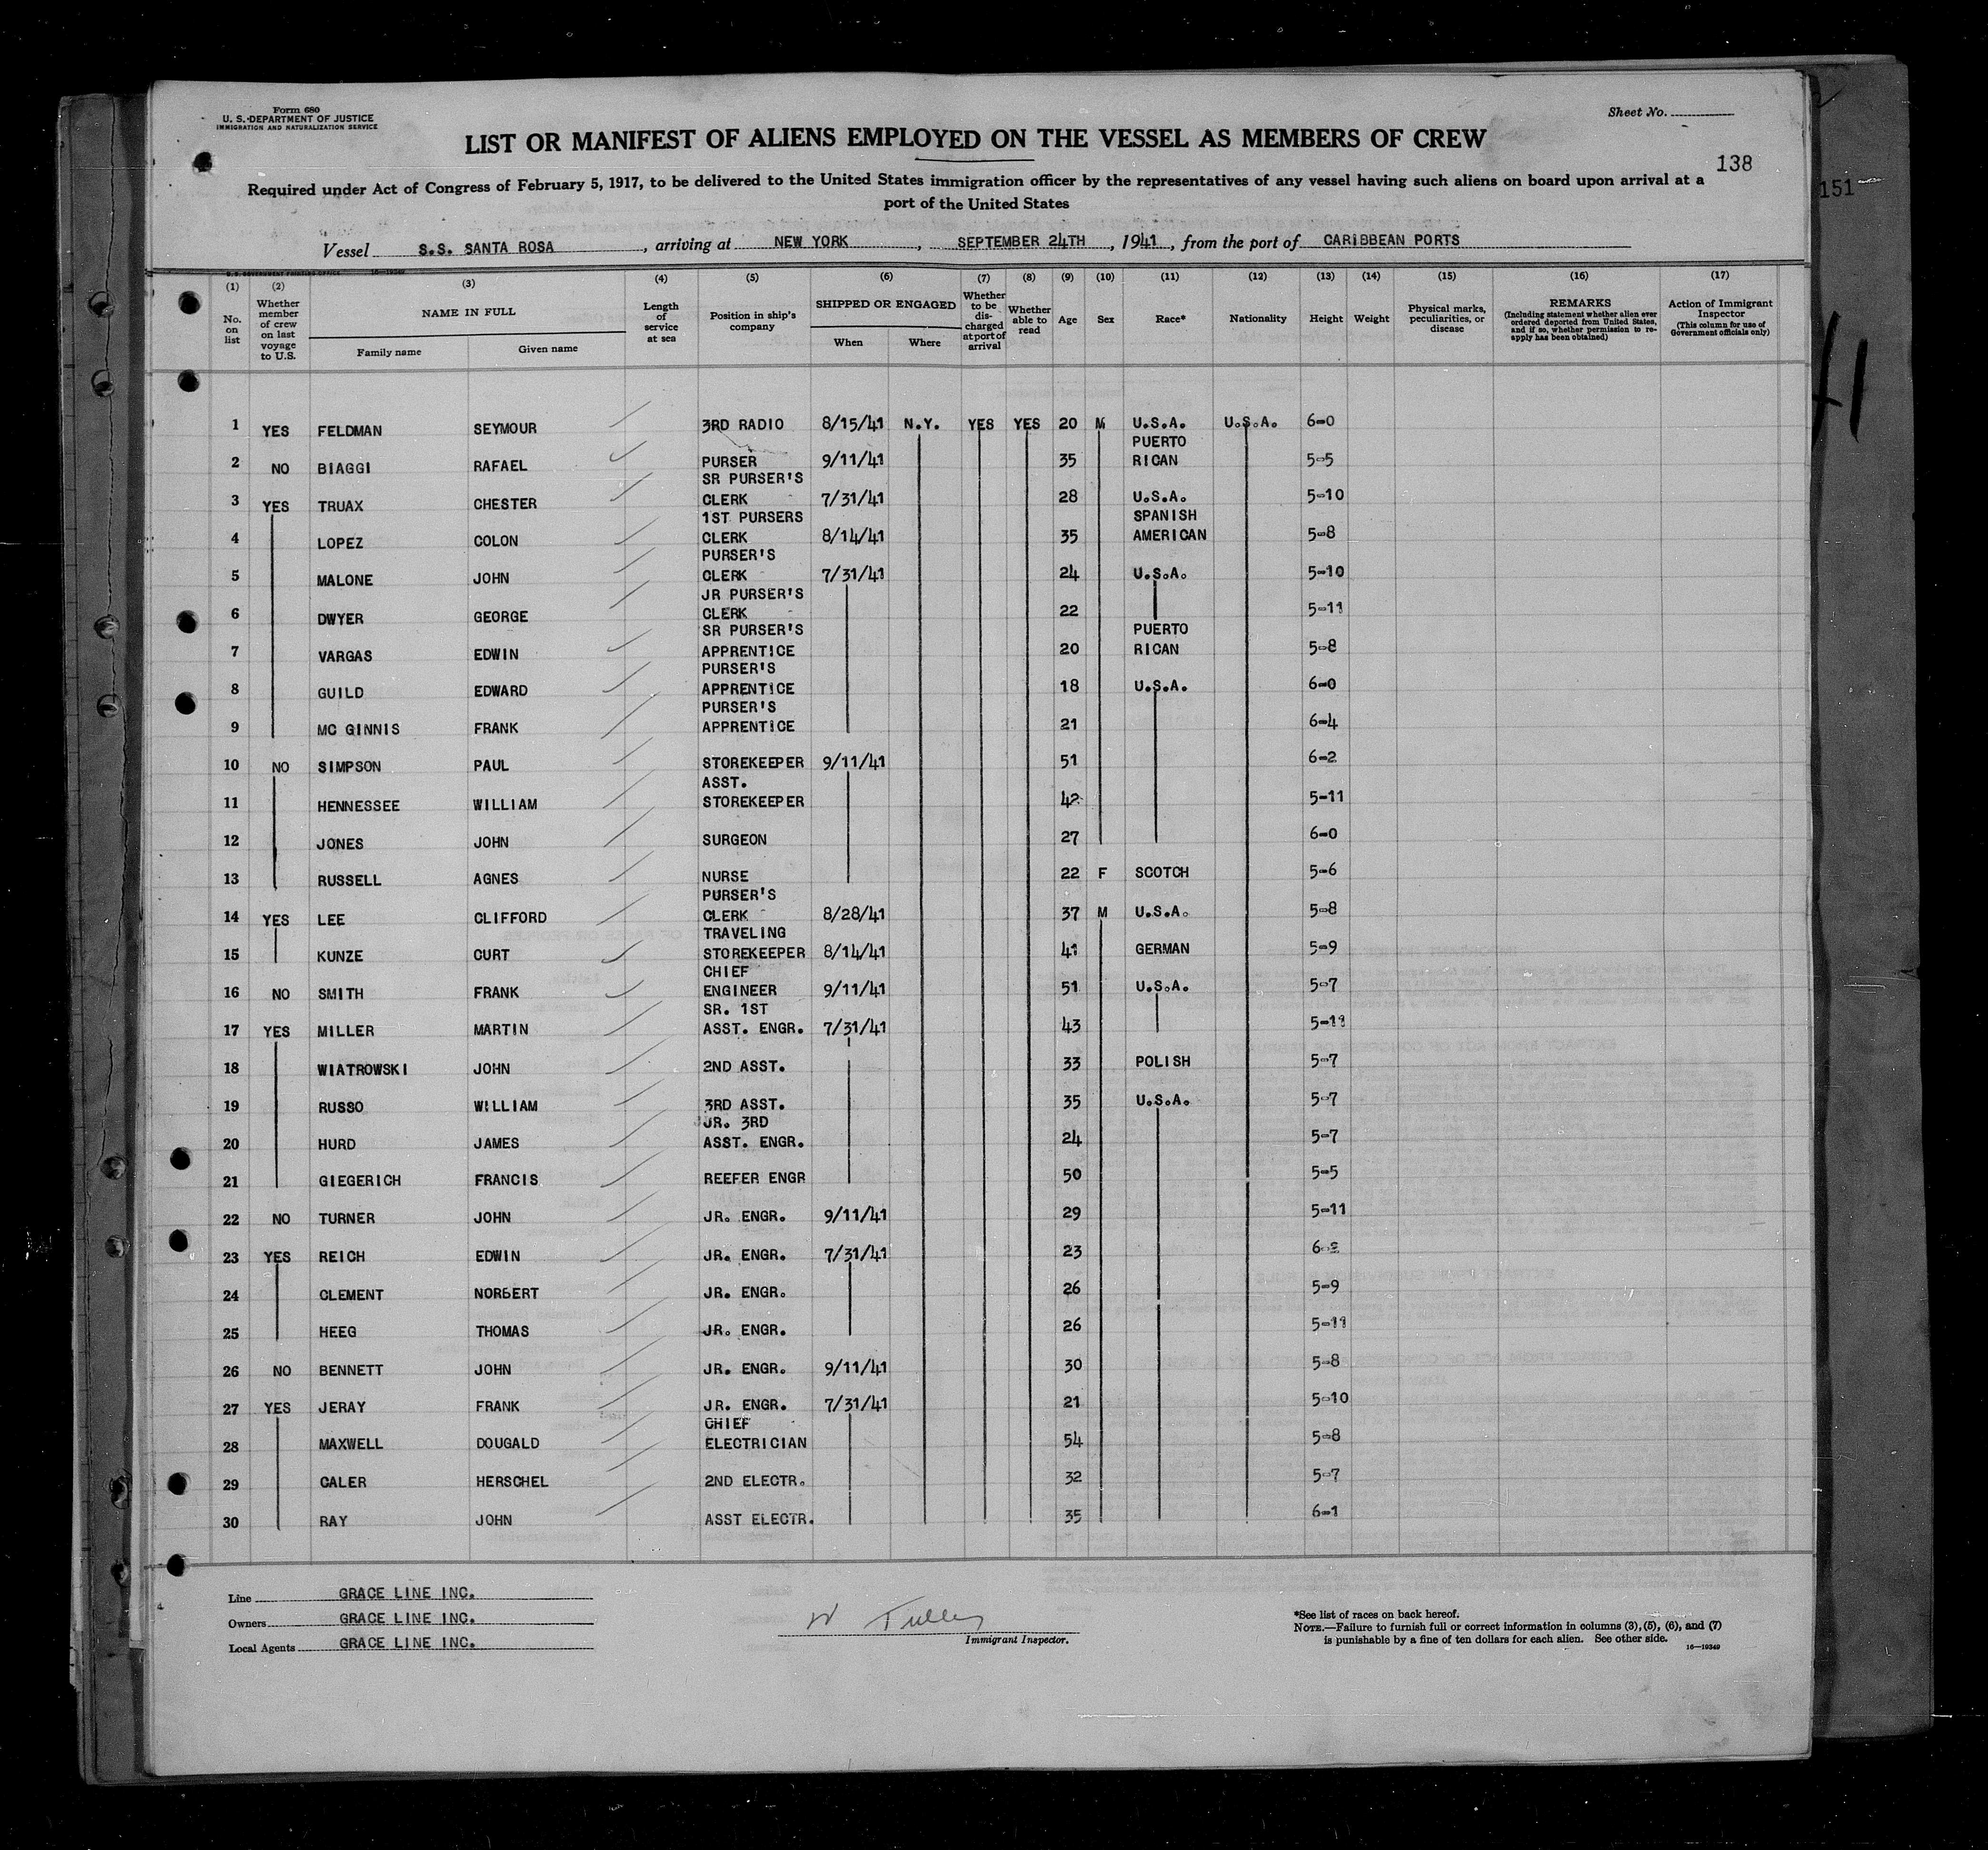 Form 680
U. S. DEPARTMENT OF JUSTICE
IMMIGRATION AND NATURALIZATION SERVICE
Sheet No.
LIST OR MANIFEST OF ALIENS EMPLOYED ON THE VESSEL AS MEMBERS OF CREW
138
151
Required under Act of Congress of February 5, 1917, to be delivered to the United States immigration officer by the representatives of any vessel having such aliens on board upon arrival at a
port of the United States
Vessel S.S. SANTA ROSA, arriving at NEW YORK, SEPTEMBER 24TH, 1941, from the port of CARIBBEAN PORTS
U. S. GOVERNMENT PRINTING OFFICE 16—19349
(1) No. on list
(2) Whether member of crew on last voyage to U.S.
(3) NAME IN FULL Family name Given name
(4) Length of service at sea
(5) Position in ship's company
(6) SHIPPED OR ENGAGED When Where
(7) Whether to be discharged at port of arrival
(8) Whether able to read
(9) Age
(10) Sex
(11) Race*
(12) Nationality
(13) Height
(14) Weight
(15) Physical marks, peculiarities, or disease
(16) REMARKS (Including statement whether alien ever ordered deported from United States, and if so, whether permission to re-apply has been obtained)
(17) Action of Immigrant Inspector (This column for use of Government officials only)
1 YES FELDMAN SEYMOUR 3RD RADIO 8/15/41 N.Y. YES YES 20 M U.S.A. U.S.A. 6-0
2 NO BIAGGI RAFAEL PURSER 9/11/41 35 PUERTO RICAN 5-5
3 YES TRUAX CHESTER SR PURSER'S CLERK 7/31/41 28 U.S.A. 5-10
4 LOPEZ COLON 1ST PURSERS CLERK 8/14/41 35 SPANISH AMERICAN 5-8
5 MALONE JOHN PURSER'S CLERK 7/31/41 24 U.S.A. 5-10
6 DWYER GEORGE JR PURSER'S CLERK 22 5-11
7 VARGAS EDWIN SR PURSER'S APPRENTICE 20 PUERTO RICAN 5-8
8 GUILD EDWARD PURSER'S APPRENTICE 18 U.S.A. 6-0
9 MC GINNIS FRANK PURSER'S APPRENTICE 21 6-4
10 NO SIMPSON PAUL STOREKEEPER 9/11/41 51 6-2
11 HENNESSEE WILLIAM ASST. STOREKEEPER 42 5-11
12 JONES JOHN SURGEON 27 6-0
13 RUSSELL AGNES NURSE 22 F SCOTCH 5-6
14 YES LEE CLIFFORD PURSER'S CLERK 8/28/41 37 M U.S.A. 5-8
15 KUNZE CURT TRAVELING STOREKEEPER 8/14/41 41 GERMAN 5-9
16 NO SMITH FRANK CHIEF ENGINEER 9/11/41 51 U.S.A. 5-7
17 YES MILLER MARTIN SR. 1ST ASST. ENGR. 7/31/41 43 5-11
18 WIATROWSKI JOHN 2ND ASST. 33 POLISH 5-7
19 RUSSO WILLIAM 3RD ASST. 35 U.S.A. 5-7
20 HURD JAMES JR. 3RD ASST. ENGR. 24 5-7
21 GIEGERICH FRANCIS REEFER ENGR 50 5-5
22 NO TURNER JOHN JR. ENGR. 9/11/41 29 5-11
23 YES REICH EDWIN JR. ENGR. 7/31/41 23
24 CLEMENT NORBERT JR. ENGR. 26 5-9
25 HEEG THOMAS JR. ENGR. 26 5-11
26 NO BENNETT JOHN JR. ENGR. 9/11/41 30 5-8
27 YES JERAY FRANK JR. ENGR. 7/31/41 21 5-10
28 MAXWELL DOUGALD CHIEF ELECTRICIAN 54 5-8
29 CALER HERSCHEL 2ND ELECTR. 32 5-7
30 RAY JOHN ASST ELECTR. 35 6-1
Line GRACE LINE INC.
Owners GRACE LINE INC.
Local Agents GRACE LINE INC.
W Tulley
Immigrant Inspector.
*See list of races on back hereof.
NOTE.—Failure to furnish full or correct information in columns (3), (5), (6), and (7)
is punishable by a fine of ten dollars for each alien. See other side.
16—19349